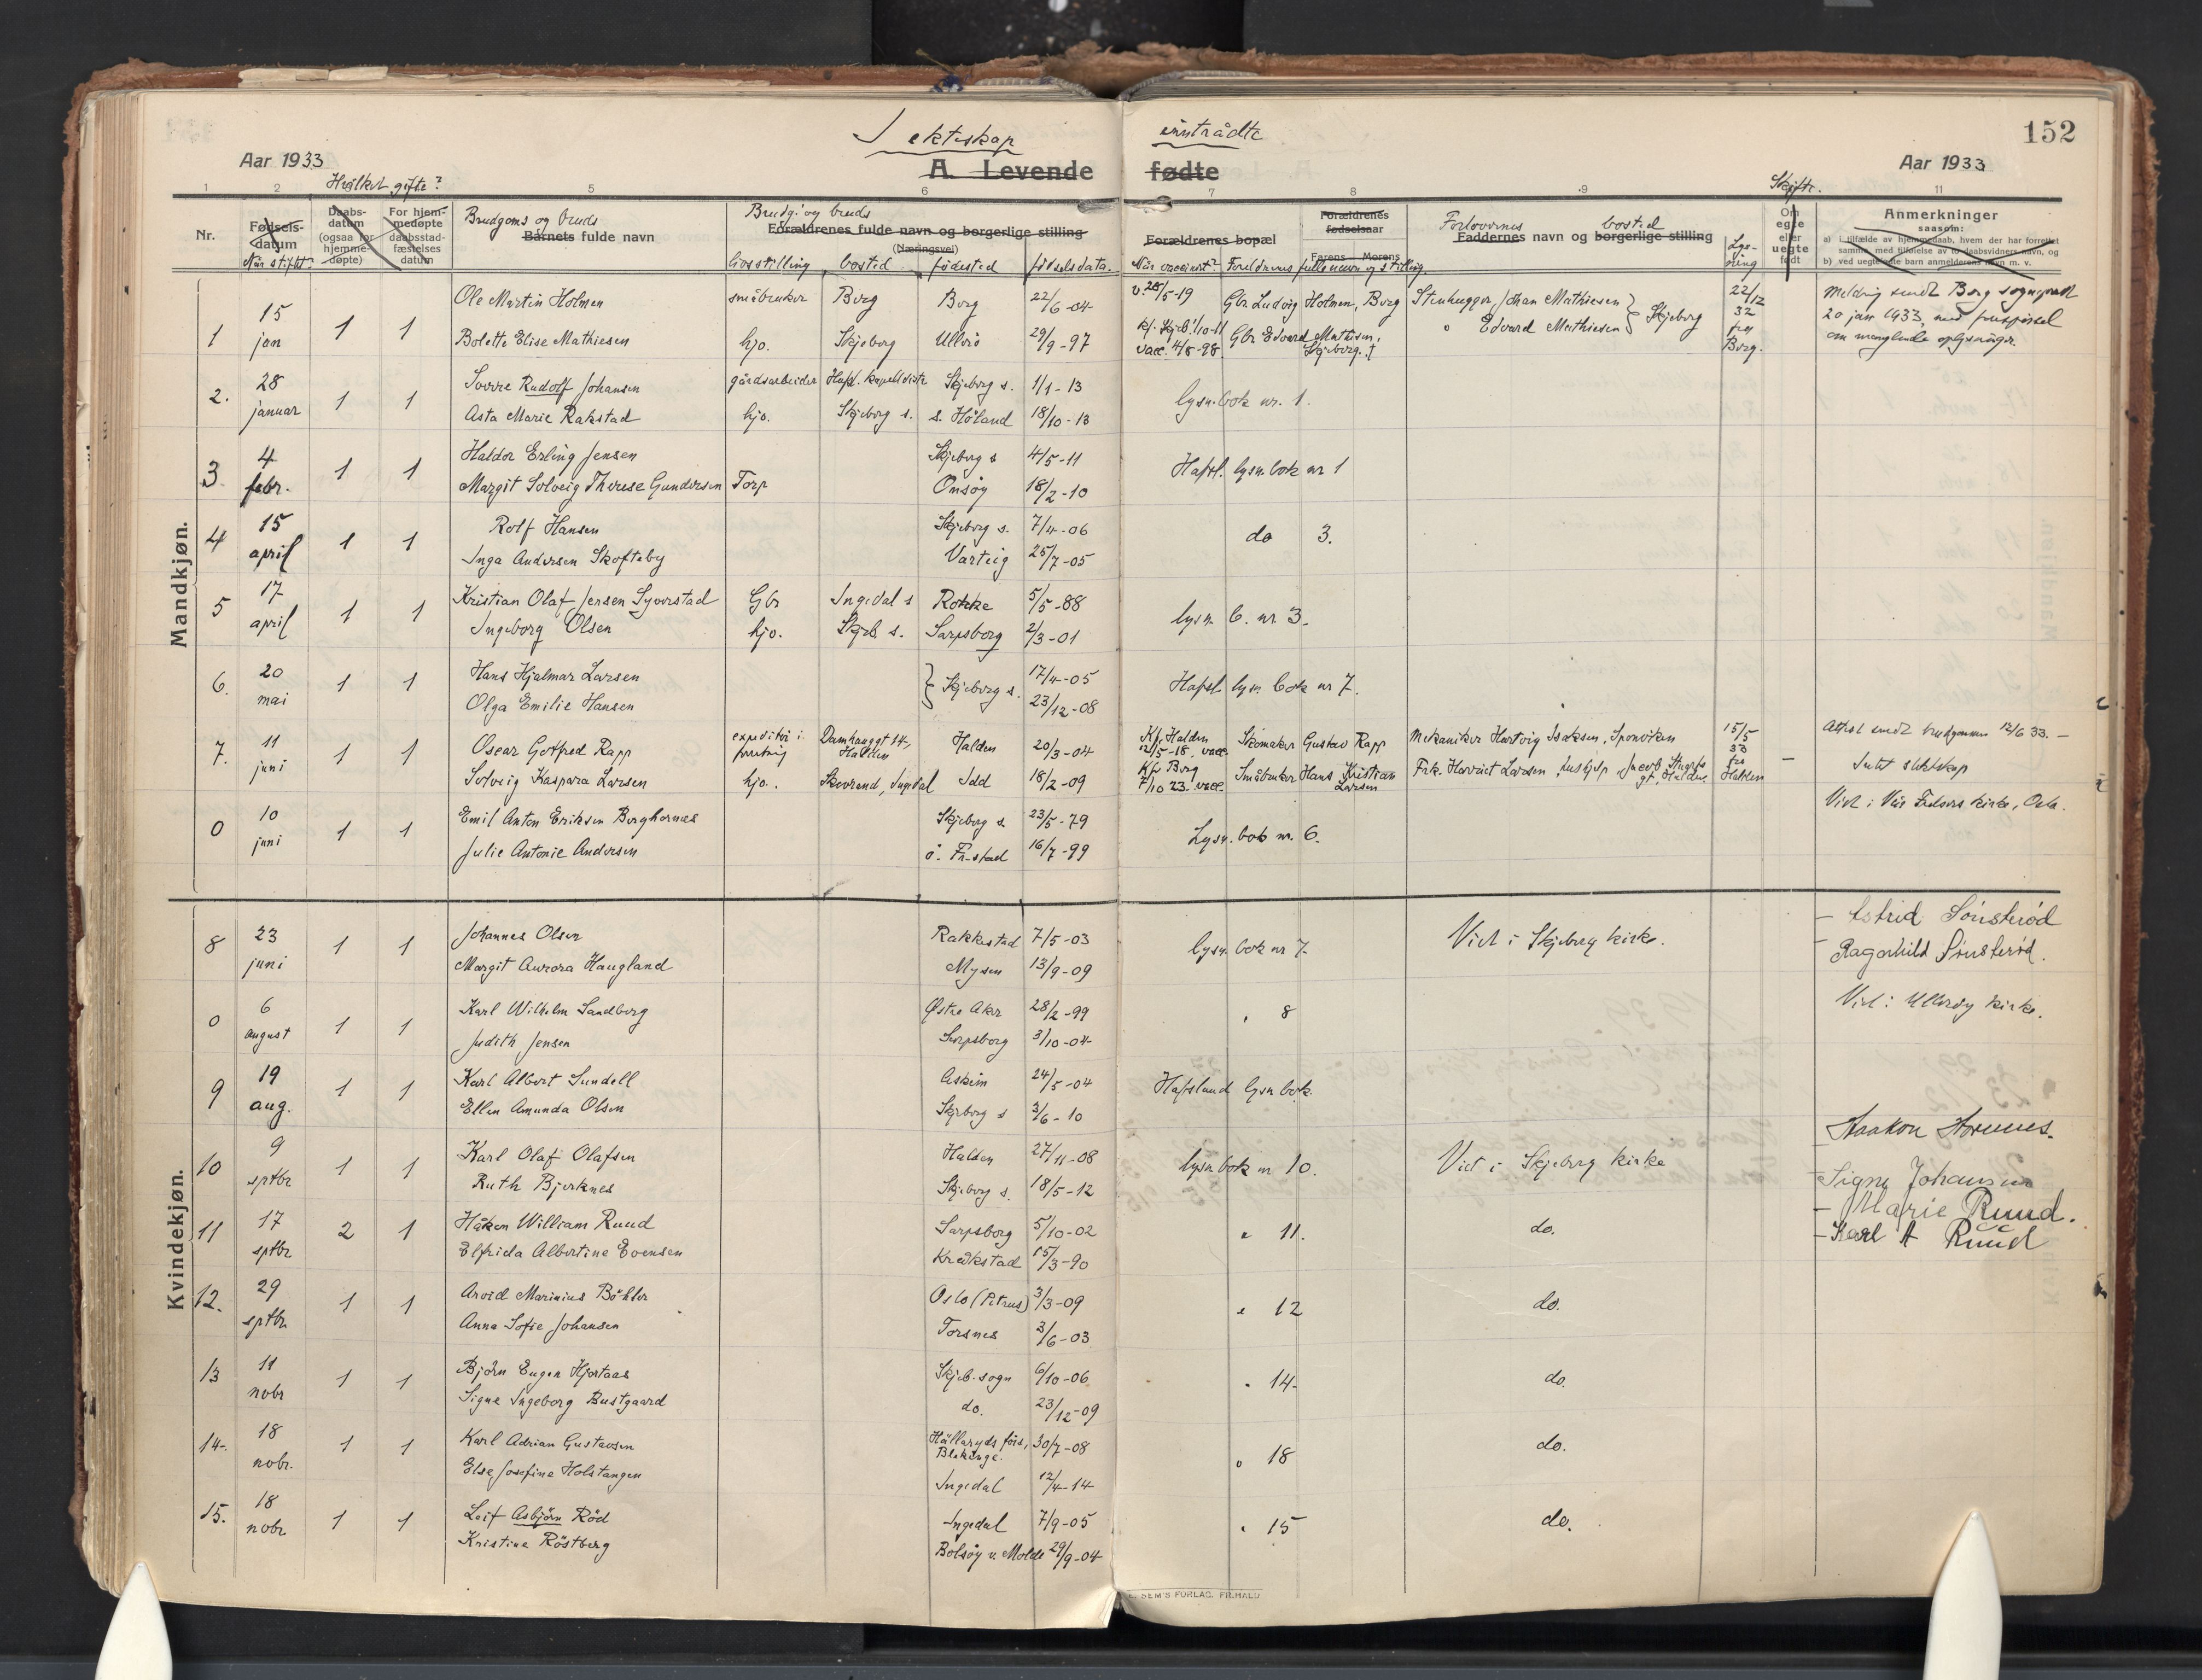 152
I ektiskap inntrådte
Aar 1933
A. Levende fødte
Aar 1933
Hvilket gifte?
Skifte.
1 2 5 6 7 8 9 11
Nr.
Fødsels-datum
Når stiftet?
Daabs-datum (ogsaa for hjemme-døpte)
For hjem-medøpte daabsstad-fæstelses datum
Brudgoms og bruds
Barnets fulde navn
Brudg. og bruds
Forældrenes fulde navn og borgerlige stilling
(Næringsvei)
livsstilling bosted fødested fødselsdata.
Forældrenes bopæl
Når vaccinert? Foreldrenes fulle navn og stilling.
Forældrenes fødselsaar
Farens Morens
Forlovernes bosted
Faddernes navn og borgerlige stilling
Lys-ning
Om egte eller uegte født
Anmerkninger
saasom:
a) i tilfælde av hjemmedaab, hvem der har forrettet samme, med tilføielse av daabsvidners navn, og
b) ved uegte fødte barn anmelderens navn m. v.
Mandkjøn.
1 15 jan 1 1 Ole Martin Holmen småbruker Borg Borg 22/6-04 v. 28/5-19 Gbr Ludvig Holmen, Borg Stenhugger Johan Mathiesen } Skjeberg 22/12 32 fra Borg. Melding sendt Borg sogneprest
20 jan 1933, med forespørsel
om manglende oplysninger.
Bolette Elise Mathiesen hjv. Skjeberg Ullerö 29/9-97 kf. Skjeb. 1/10-11 vacc. 4/8-98 Gbr Edvard Mathisen, Skjeberg. † " Edvard Mathiesen
2. 28 januar 1 1 Sverre Rudolf Johansen gårdsarbeider Hafsl. kapelldistr Skjeberg s. 1/1-13 lysn.bok nr. 1.
Asta Marie Rakstad hjv. Skjeberg s. s. Höland 18/10-13
3 4 febr. 1 1 Haldor Erling Jensen Skjeberg s 4/5-11 Hafsl. lysn. bok nr 1
Margit Solveig Therese Gundersen Torp Onsöy 18/2-10
4 15 april 1 1 Rolf Hansen Skjeberg s. 7/4-06 do 3.
Inga Andersen Skofteby Varteig 25/7-05
5 17 april 1 1 Kristian Olaf Jensen Syverstad Gbr Ingedal s Rokke 5/5-88 lysn. b. nr 3.
Ingeborg Olsen hjv. Skjeb s. Sarpsborg 2/3-01
6. 20 mai 1 1 Hans Hjalmar Larsen } Skjeberg s. 17/4-05 Hafsl. lysn bok nr 7.
Olga Emilie Hansen 23/12-08
7. 11 juni 1 1 Oscar Gotfred Rapp expeditør i forretning Damhauggt 14, Halden Halden 20/3-04 Kf. Halden 12/5-18. vacc. Skomaker Gustav Rapp Mekaniker Hartvig Isaksen, Sponviken 15/5 33 fra Halden Attest sendt brudgommen 12/6 33. –
Solveig Kaspara Larsen hjv. Skivrand, Ingedal Idd 18/2-09 Kf. Borg 7/10 23. vacc. Småbruker Hans Kristian Larsen Frk. Harriet Larsen – Intet slektskap
0 10 juni 1 1 Emil Anton Eriksen Berghornes Skjeberg s. 23/5-79 Lysn. bok nr. 6. Viet i Vår Frelsers kirke, Oslo.
Julie Antonie Andersen ö. Fr.stad 16/7-99
Kvindekjøn.
8 23 juni 1 1 Johannes Olsen Rakkestad 7/5-03 lysn. bok nr 7. Viet i Skjeberg kirke. – Astrid Sønsterød
Margit Aurora Haugland Mysen 13/9-09 – Ragnhild Sønsterød.
0 6 august 1 1 Karl Wilhelm Sandberg Østre Aker 28/2-99 " 8 Viet i Ullerøy kirke.
Judith Jensen Sarpsborg 3/10-04
9 19 aug. 1 1 Karl Albert Sundell Askim 24/5-04 Hafslund lysn bok.
Ellen Amunda Olsen Skjeberg s 3/6-10
10 9 sptbr 1 1 Karl Olaf Olafsen Halden 27/11-08 lysn. bok nr 10. Viet i Skjeberg kirke Haakon
Ruth Bjerknes Skjeberg s. 18/5-12 – Signe Johansen
11 17 sptbr 2 1 Håken William Ruud Sarpsborg 5/10-02 " 11. do. – Marie Ruud.
Elfrida Albertine Evensen Kråkstad 15/3-90 – Karl A Ruud
12. 29 sptbr 1 1 Arvid Marinius Böhler Oslo (Petrus) 3/3-09 " 12 do.
Anna Sofie Johansen Torsnes 3/6-03
13 11 nobr 1 1 Björn Eugen Hjortaas Skjeb. sogn 6/10-06 " 14. do.
Signe Ingeborg Bustgaard do. 23/12-09
14. 18 nobr. 1 1 Karl Adrian Gustavsen Hällaryds förs, Blekinge. 30/7-08 " 18 do.
Else Josefine Holstangen Ingedal 12/4-14
15. 18 nobr 1 1 Leif Asbjörn Röd Ingedal 7/9-05 " 15 do.
Kristine Röstberg Bolsöy v. Molde 29/9-04
SEM'S FORLAG. FR.HALD